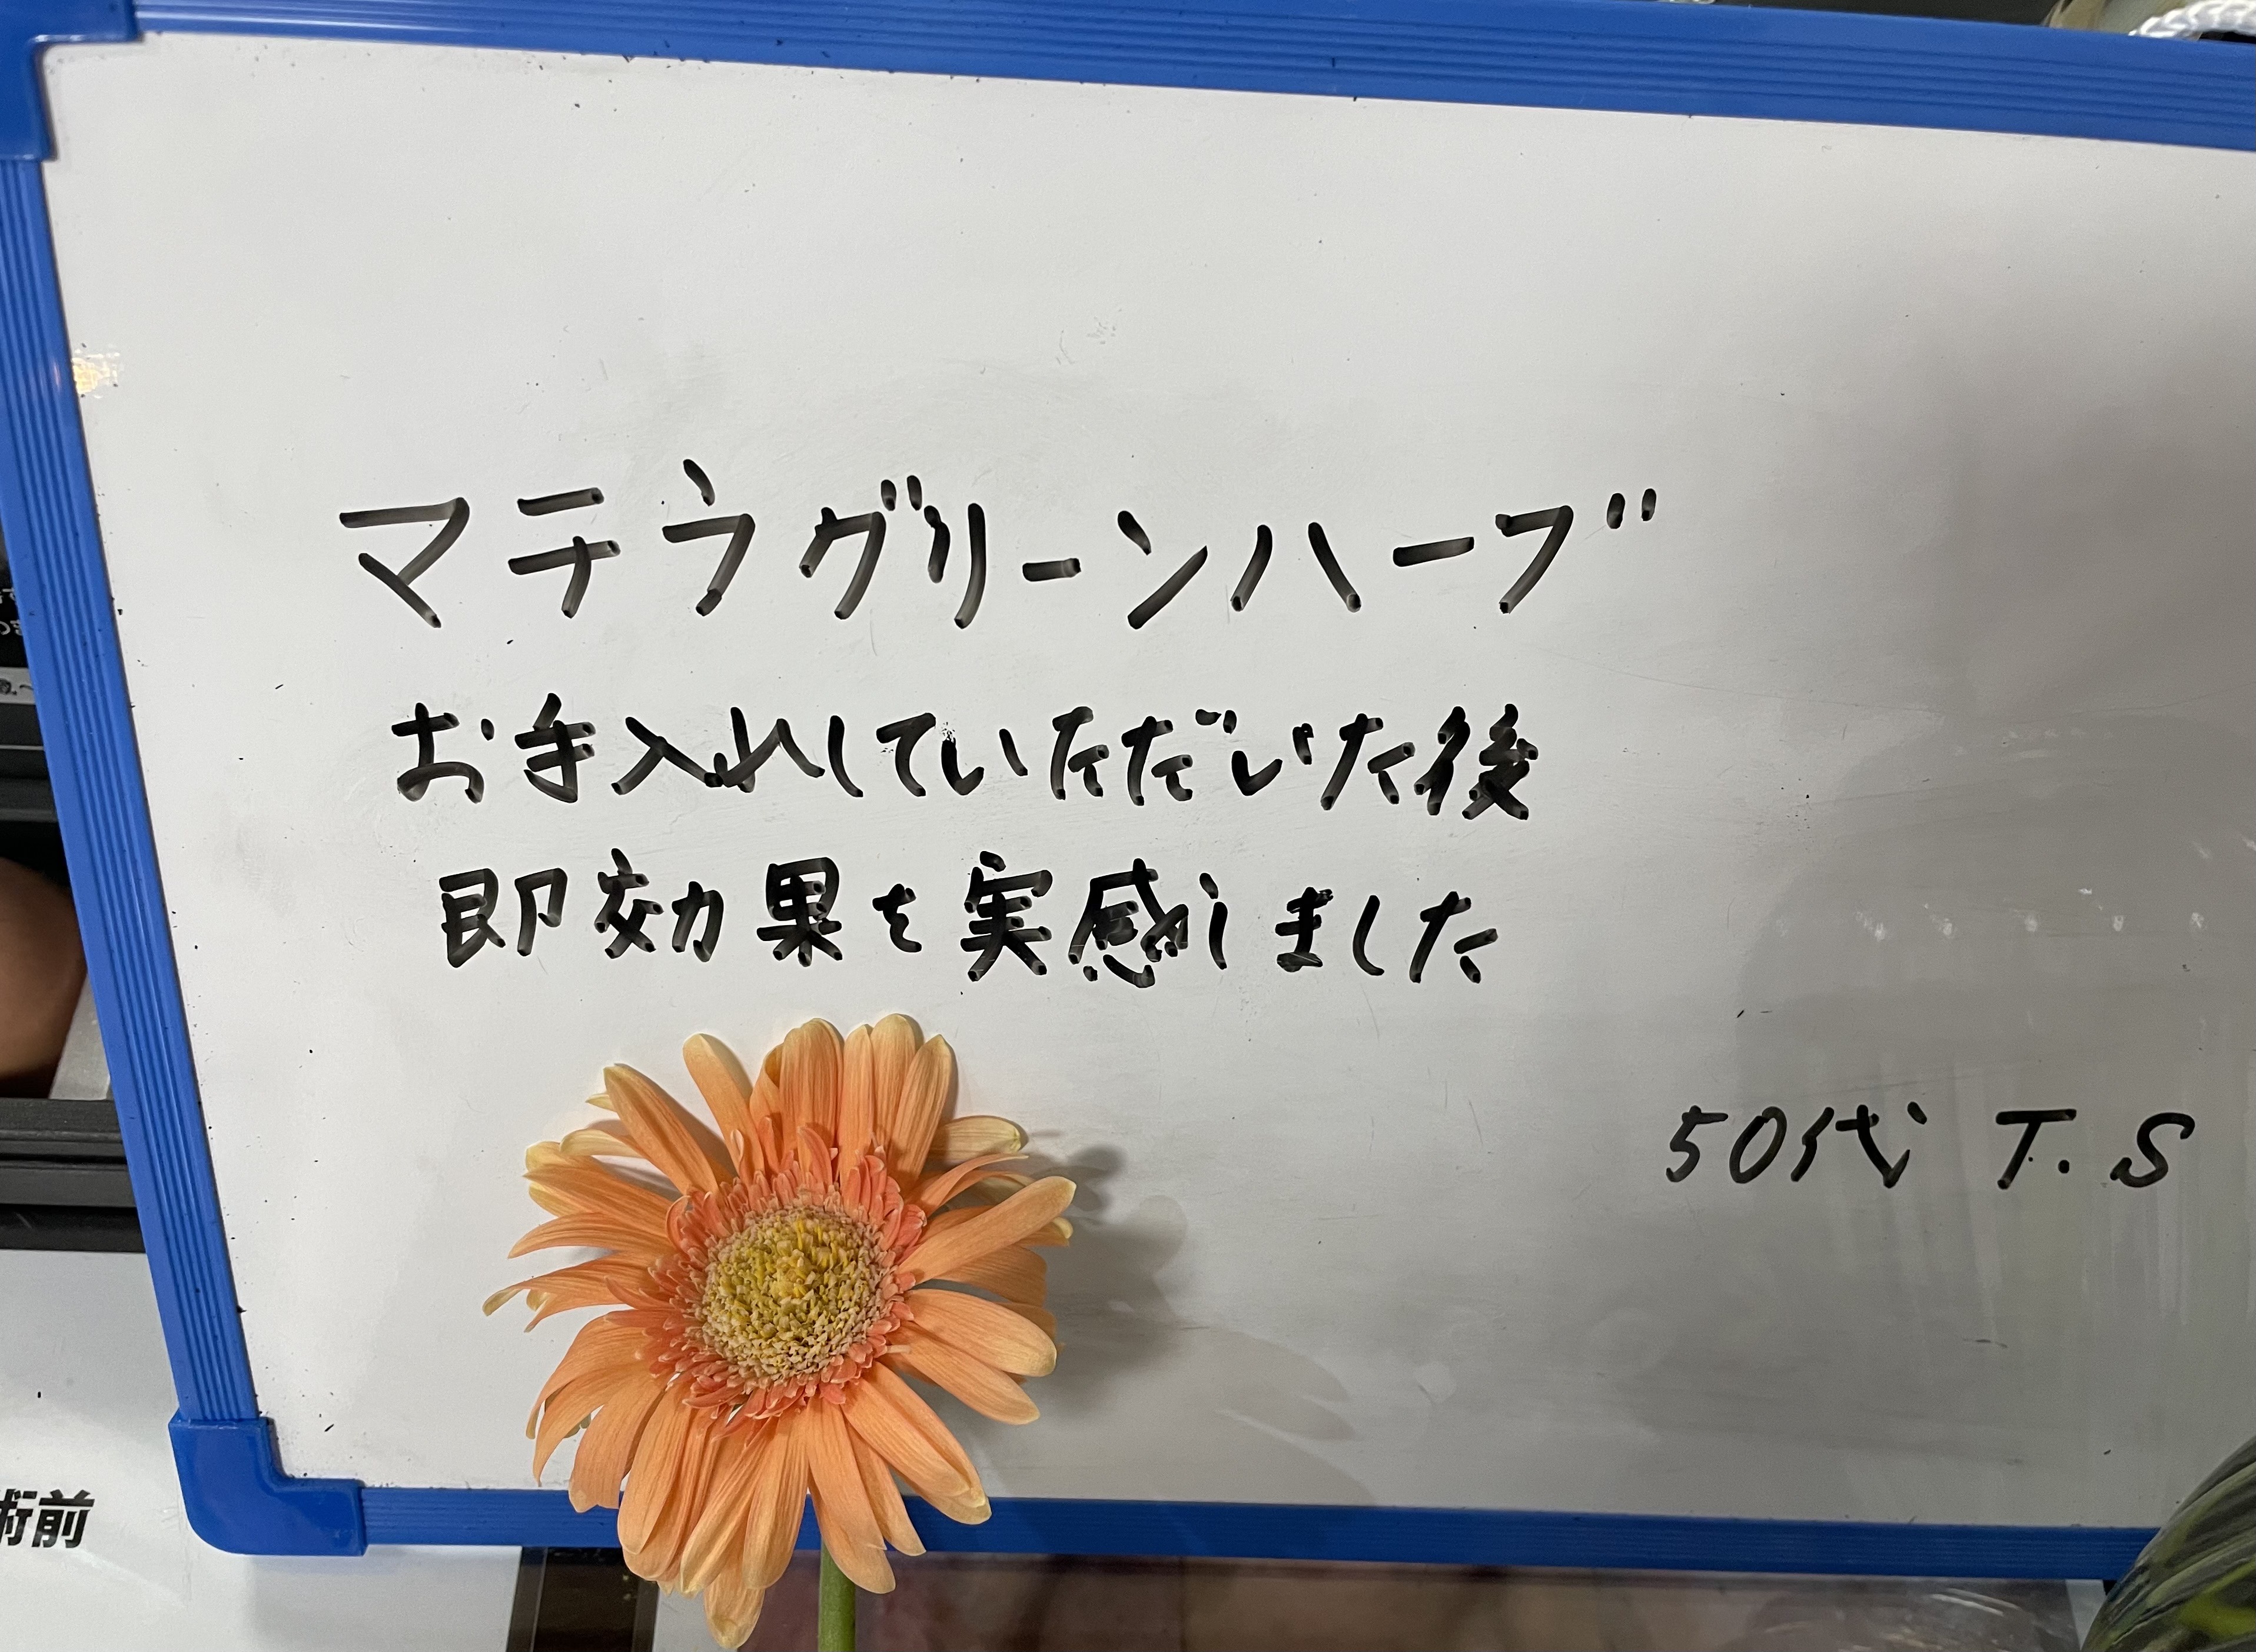 マテラグリーンハーブ
お手入れしていただいた後
即効果を実感しました
50代 T.S
術前